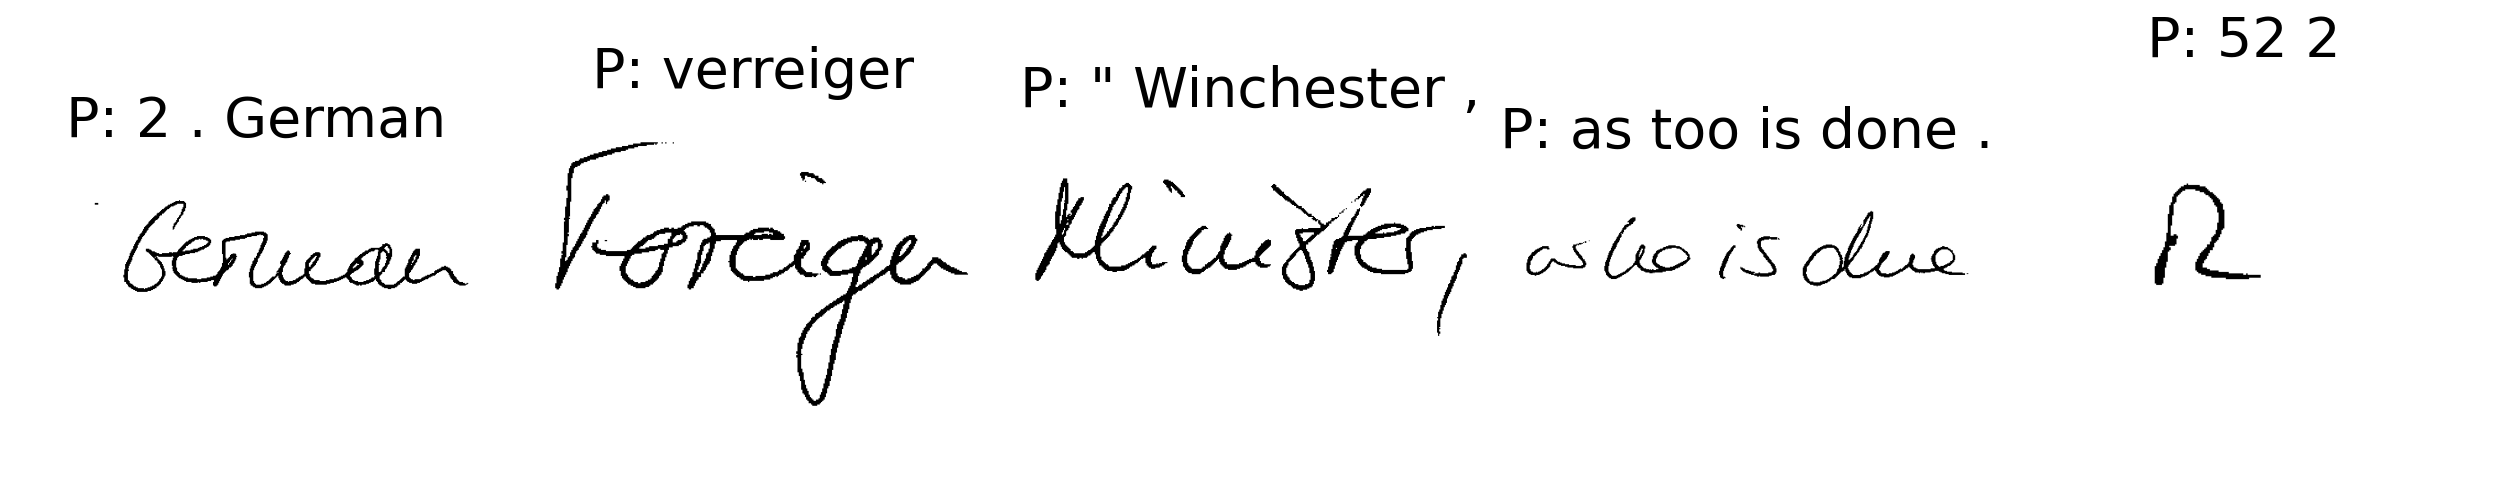 P: 2 . German P: verreiger P: " Winchester , P: as too is done . P: 52 2
German Foreign Minister, who is due